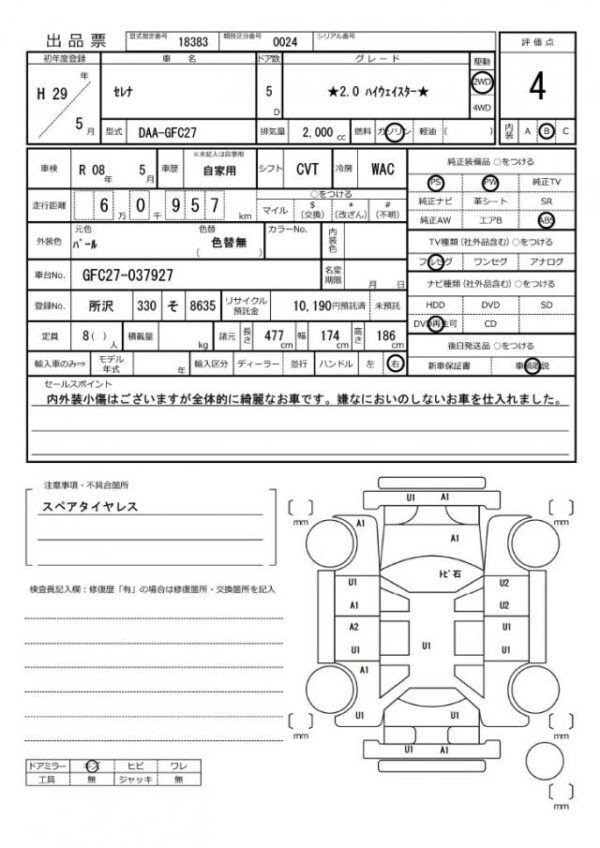 出品票 型式指定番号 18383 類別区分番号 0024 シリアル番号
評価点
初年度登録 車名 ドア数 グレード 駆動
H 29 年 5 月
セレナ
5 D
★2.0 ハイウェイスター★
2WD
4WD
4
型式 DAA-GFC27 排気量 2,000 cc 燃料 ガソリン 軽油 ( ) 内装 A B C
車検 R 08 年 5 月 車歴 ※未記入は自家用 自家用 シフト CVT 冷房 WAC
走行距離 6 万 0 千 9 5 7 km
○をつける
マイル $(交換) *(改ざん) #(不明)
外装色 元色 パール 色替 色替無 ( ) カラーNo. 内装色
車台No. GFC27-037927 名変期限 月 日
登録No. 所沢 330 そ 8635 リサイクル預託金 10,190円預託済 未預託
定員 8( )人 積載量 kg 諸元 長さ 477 cm 幅 174 cm 高さ 186 cm
輸入車のみ⇒ モデル年式 年 輸入区分 ディーラー 並行 ハンドル 左 右
純正装備品 ○をつける
PS PW 純正TV
純正ナビ 革シート SR
純正AW エアB ABS
TV種類(社外品含む)○をつける
フルセグ ワンセグ アナログ
ナビ種類(社外品含む)○をつける
HDD DVD SD
DVD再生可 CD
後日発送品 ○をつける
新車保証書 車輌取説
セールスポイント
内外装小傷はございますが全体的に綺麗なお車です。嫌なにおいのしないお車を仕入れました。
注意事項・不具合箇所
スペアタイヤレス
検査員記入欄:修復歴「有」の場合は修復箇所・交換箇所を記入
ドアミラー キズ ヒビ ワレ
工具 無 ジャッキ 無
U1 A1
[ ] mm
[ ] mm
A1
A1
トビ石
U1
U2
A1
A2
U1
U1
U1
U1
A1
A1
U1
U1
U1 A1
[ ] mm
[ ] mm
[ ] mm